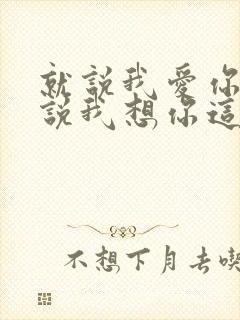 就說我愛你
說我想你這
不想下月去喫